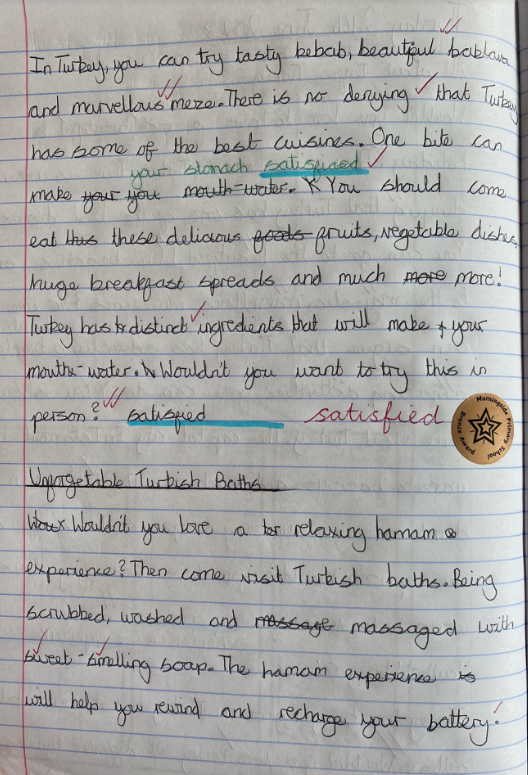 In Turkey, you can try tasty kebab, beautiful baklava
and marvellous meze. There is no denying that Turkey
has some of the best cuisines. One bite can
your stomach satisficed
make your you mouth-water. You should come
eat this these delicious foods fruits, vegetable dishes,
huge breakfast spreads and much more more!
Turkey has distinct ingredients that will make your
mouth-water. Wouldn't you want to try this in
person?
satisfied satisfied
Morningside Primary School
Unforgetable Turkish Baths
Wouldn't you love a relaxing hamam
experience? Then come visit Turkish baths. Being
scrubbed, washed and massage massaged with
sweet-smelling soap. The hamam experience is
will help you rewind and recharge your battery.